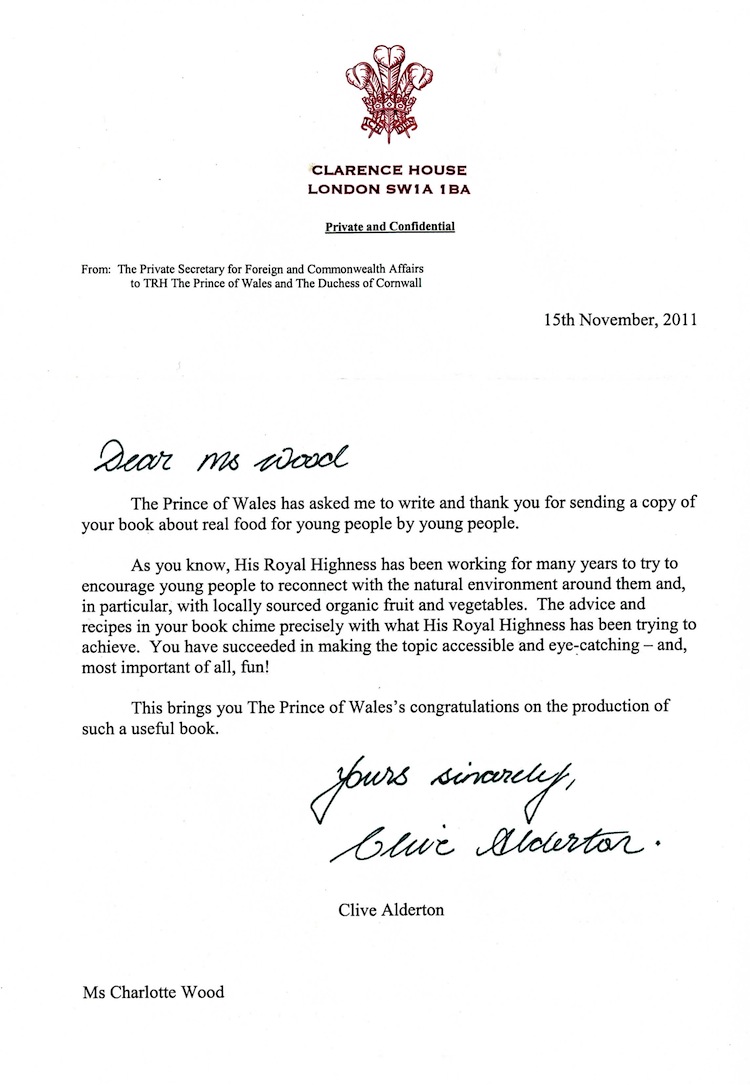 CLARENCE HOUSE
LONDON SW1A 1BA
Private and Confidential
From: The Private Secretary for Foreign and Commonwealth Affairs
to TRH The Prince of Wales and The Duchess of Cornwall
15th November, 2011
Dear Ms Wood
The Prince of Wales has asked me to write and thank you for sending a copy of
your book about real food for young people by young people.
As you know, His Royal Highness has been working for many years to try to
encourage young people to reconnect with the natural environment around them and,
in particular, with locally sourced organic fruit and vegetables. The advice and
recipes in your book chime precisely with what His Royal Highness has been trying to
achieve. You have succeeded in making the topic accessible and eye-catching – and,
most important of all, fun!
This brings you The Prince of Wales's congratulations on the production of
such a useful book.
Yours sincerely,
Clive Alderton.
Clive Alderton
Ms Charlotte Wood